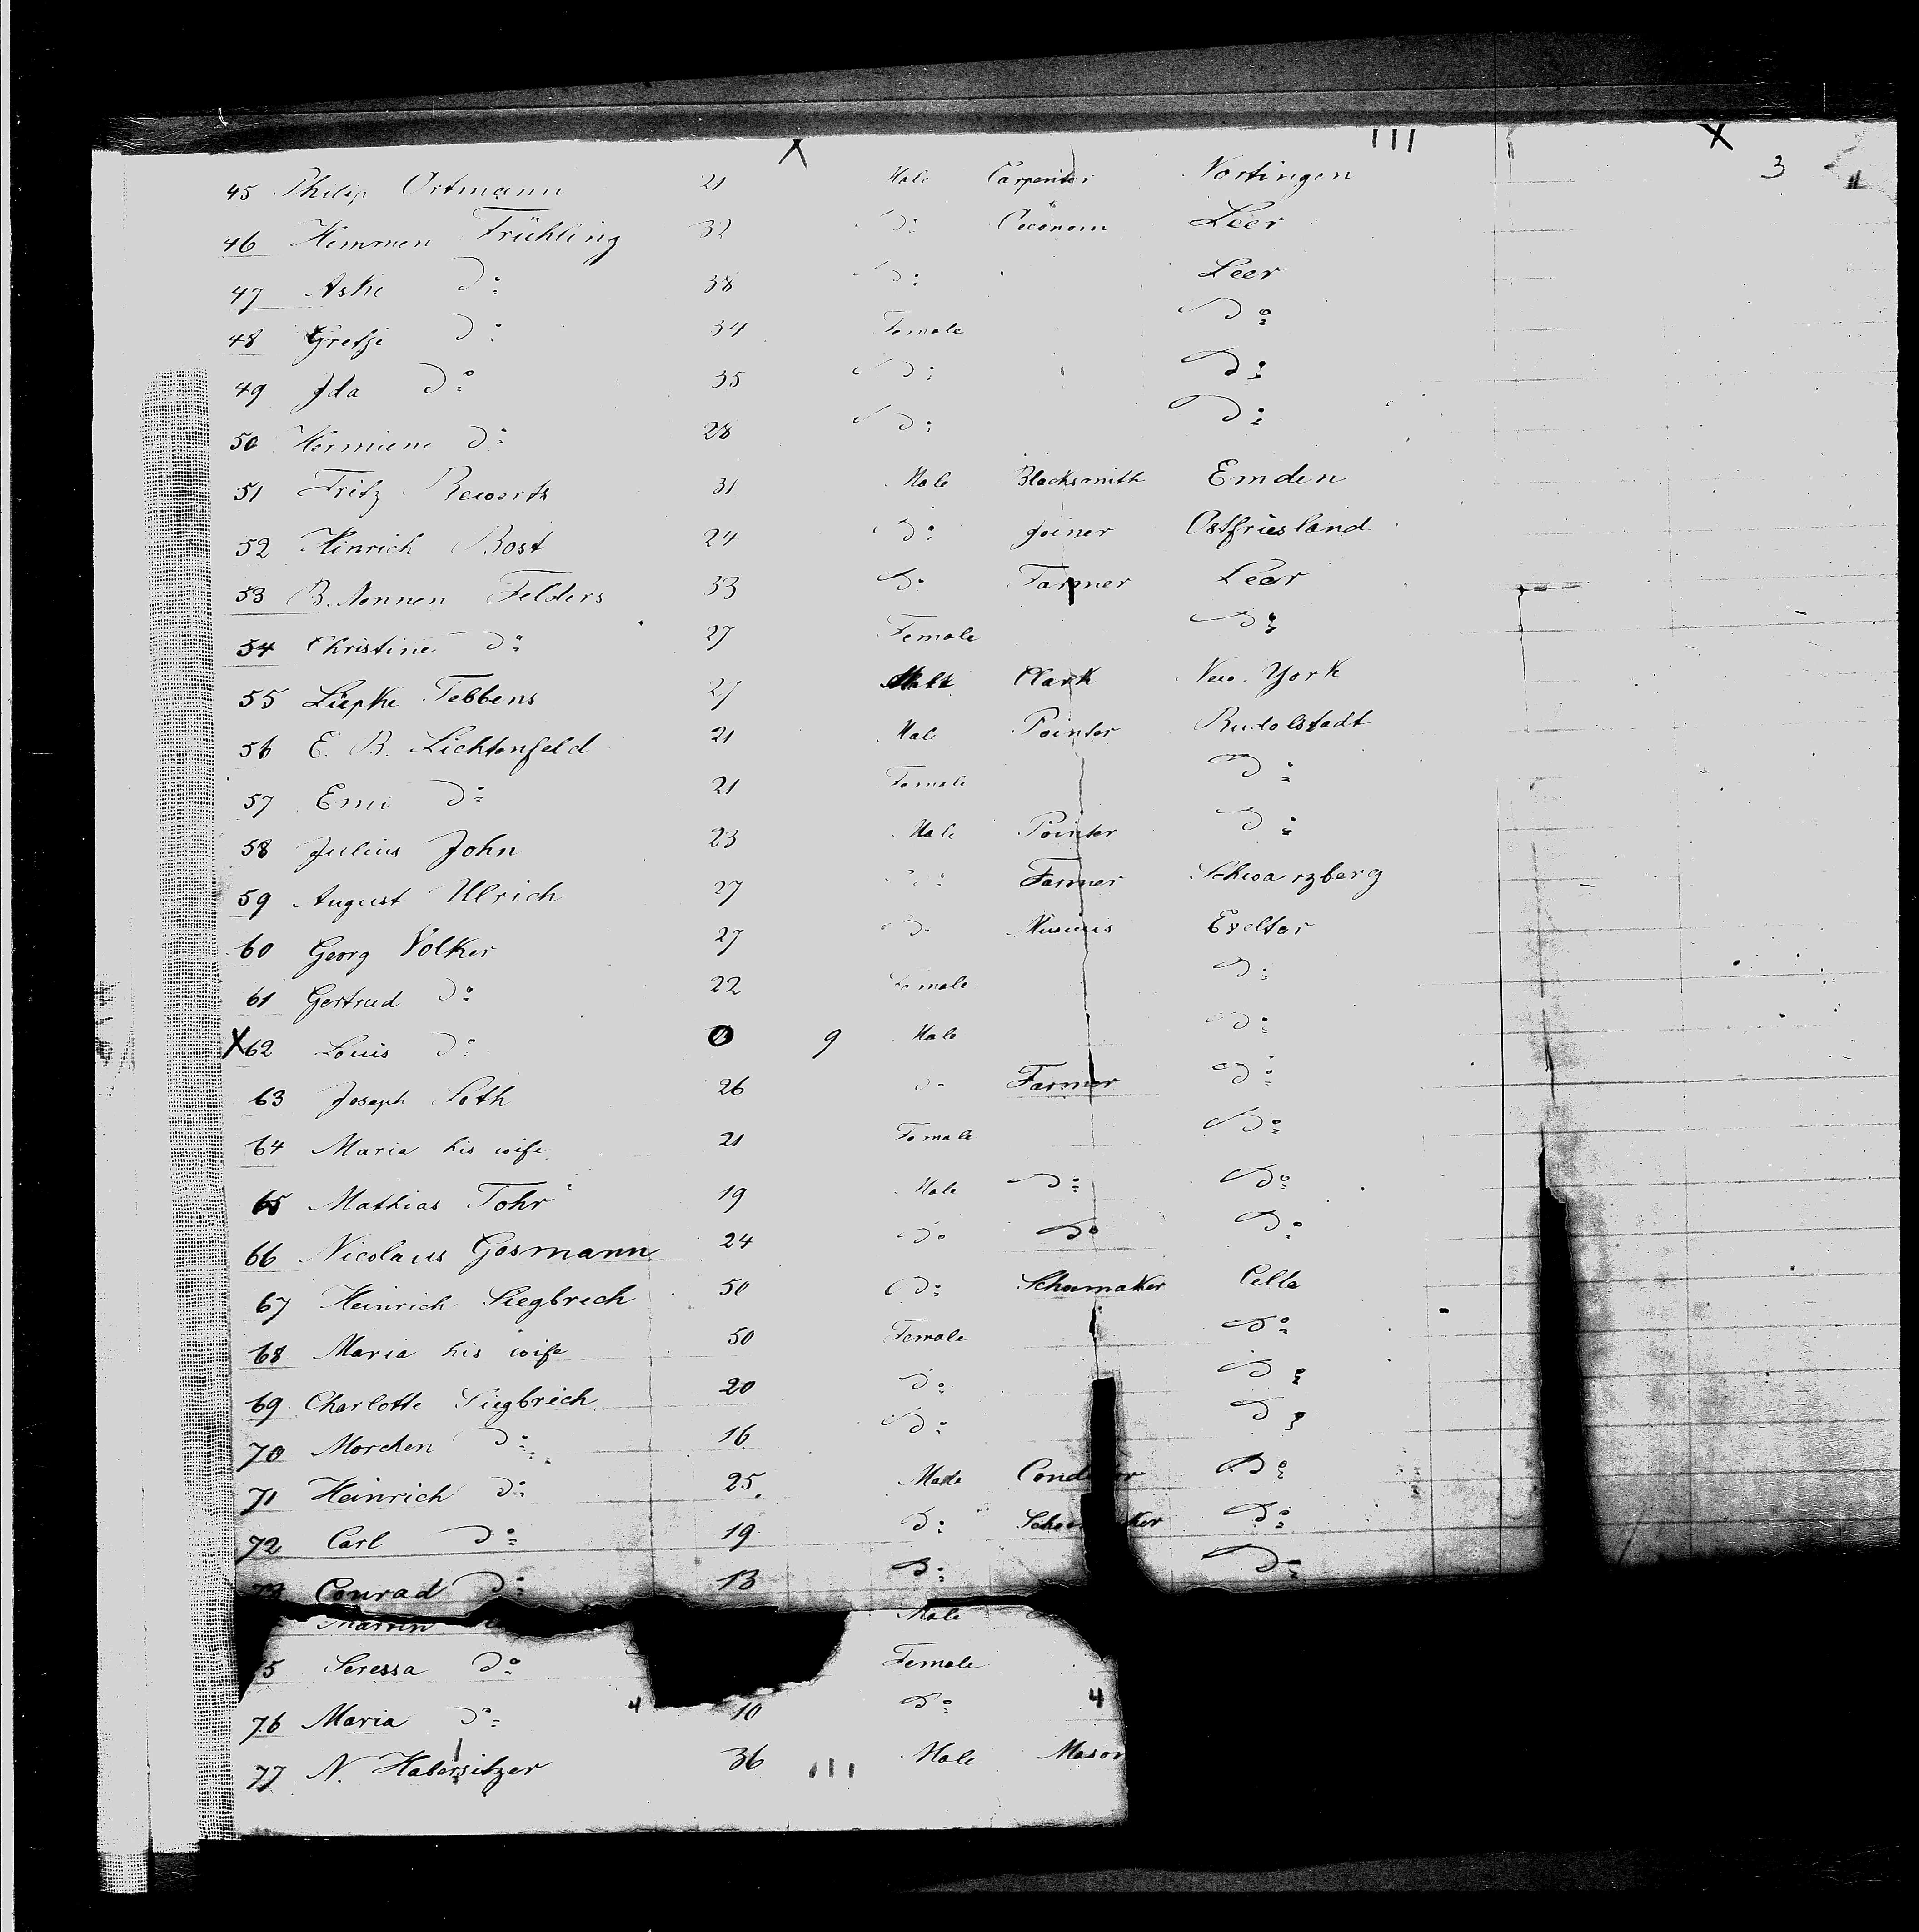 3
45 Philip Ortmann 21 Male Carpenter Nortingen
46 Himmen Frühling 32 Do: Oeconom Leer
47 Aske Do: 38 Do: Leer
48 Gretje Do: 34 Female Do:
49 Ida Do: 35 Do: Do:
50 Hermiene Do: 28 Do: Do:
51 Fritz Rewerts 31 Male Blacksmith Emden
52 Hinrich Bost 24 Do: Joiner Ostfriesland
53 B. Nonnen Felders 33 Do: Farmer Lear
54 Christine Do: 27 Female Do:
55 Lüpke Tebbens 27 Male Clark New-York
56 E. B. Lichtenfeld 21 Male Pointer Rudolstadt
57 Emi Do: 21 Female Do:
58 Julius John 23 Male Pointer Do:
59 August Ulrich 27 Do: Farmer Schwarzberg
60 Georg Volker 27 Do: Eveltar
61 Gertrud Do: 22 Female Do:
X 62 Louis Do: 0 9 Male Do:
63 Joseph Loth 26 Do: Farmer Do:
64 Maria his wife 21 Female Do:
65 Mathias Tohr 19 Male Do: Do:
66 Nicolaus Gosmann 24 Do: Do: Do:
67 Heinrich Siegbrech 50 Do: Schumaker Celle
68 Maria his wife 50 Female Do:
69 Charlotte Siegbrich 20 Do: Do:
70 Morchen Do: 16 Do: Do:
71 Heinrich Do: 25 Male Do:
72 Carl Do: 19 Do: Do:
73 Conrad Do: 13 Do: Do:
Martin Male
5 Seressa Do: Female
76 Maria Do: 4 10 Do: 4
77 N. Habersitzer 36 Male Mason